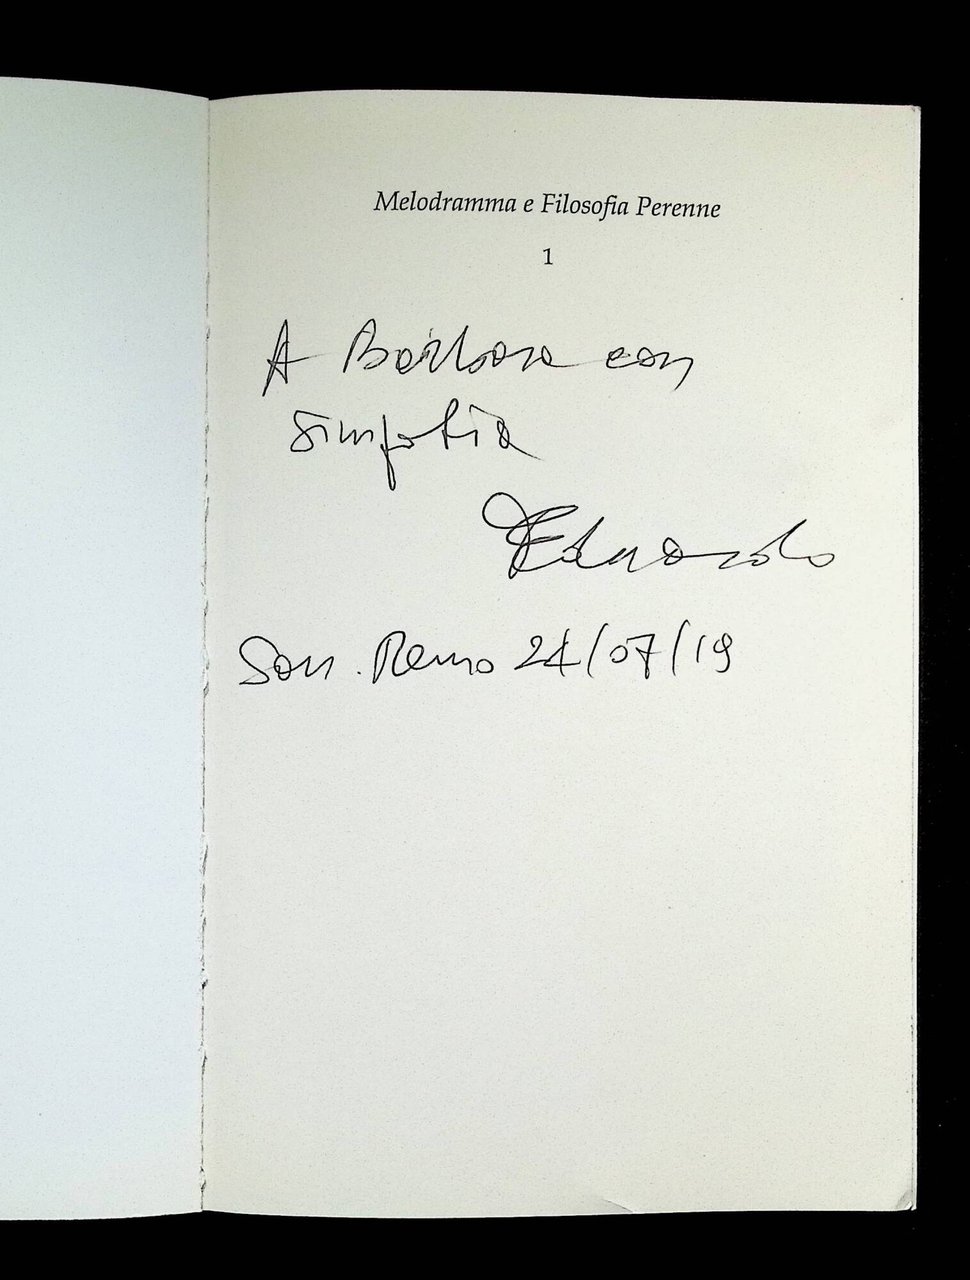 Melodramma e Filosofia Perenne
1
A Barbara con
simpatia
Eduardo
San. Remo 24/07/19